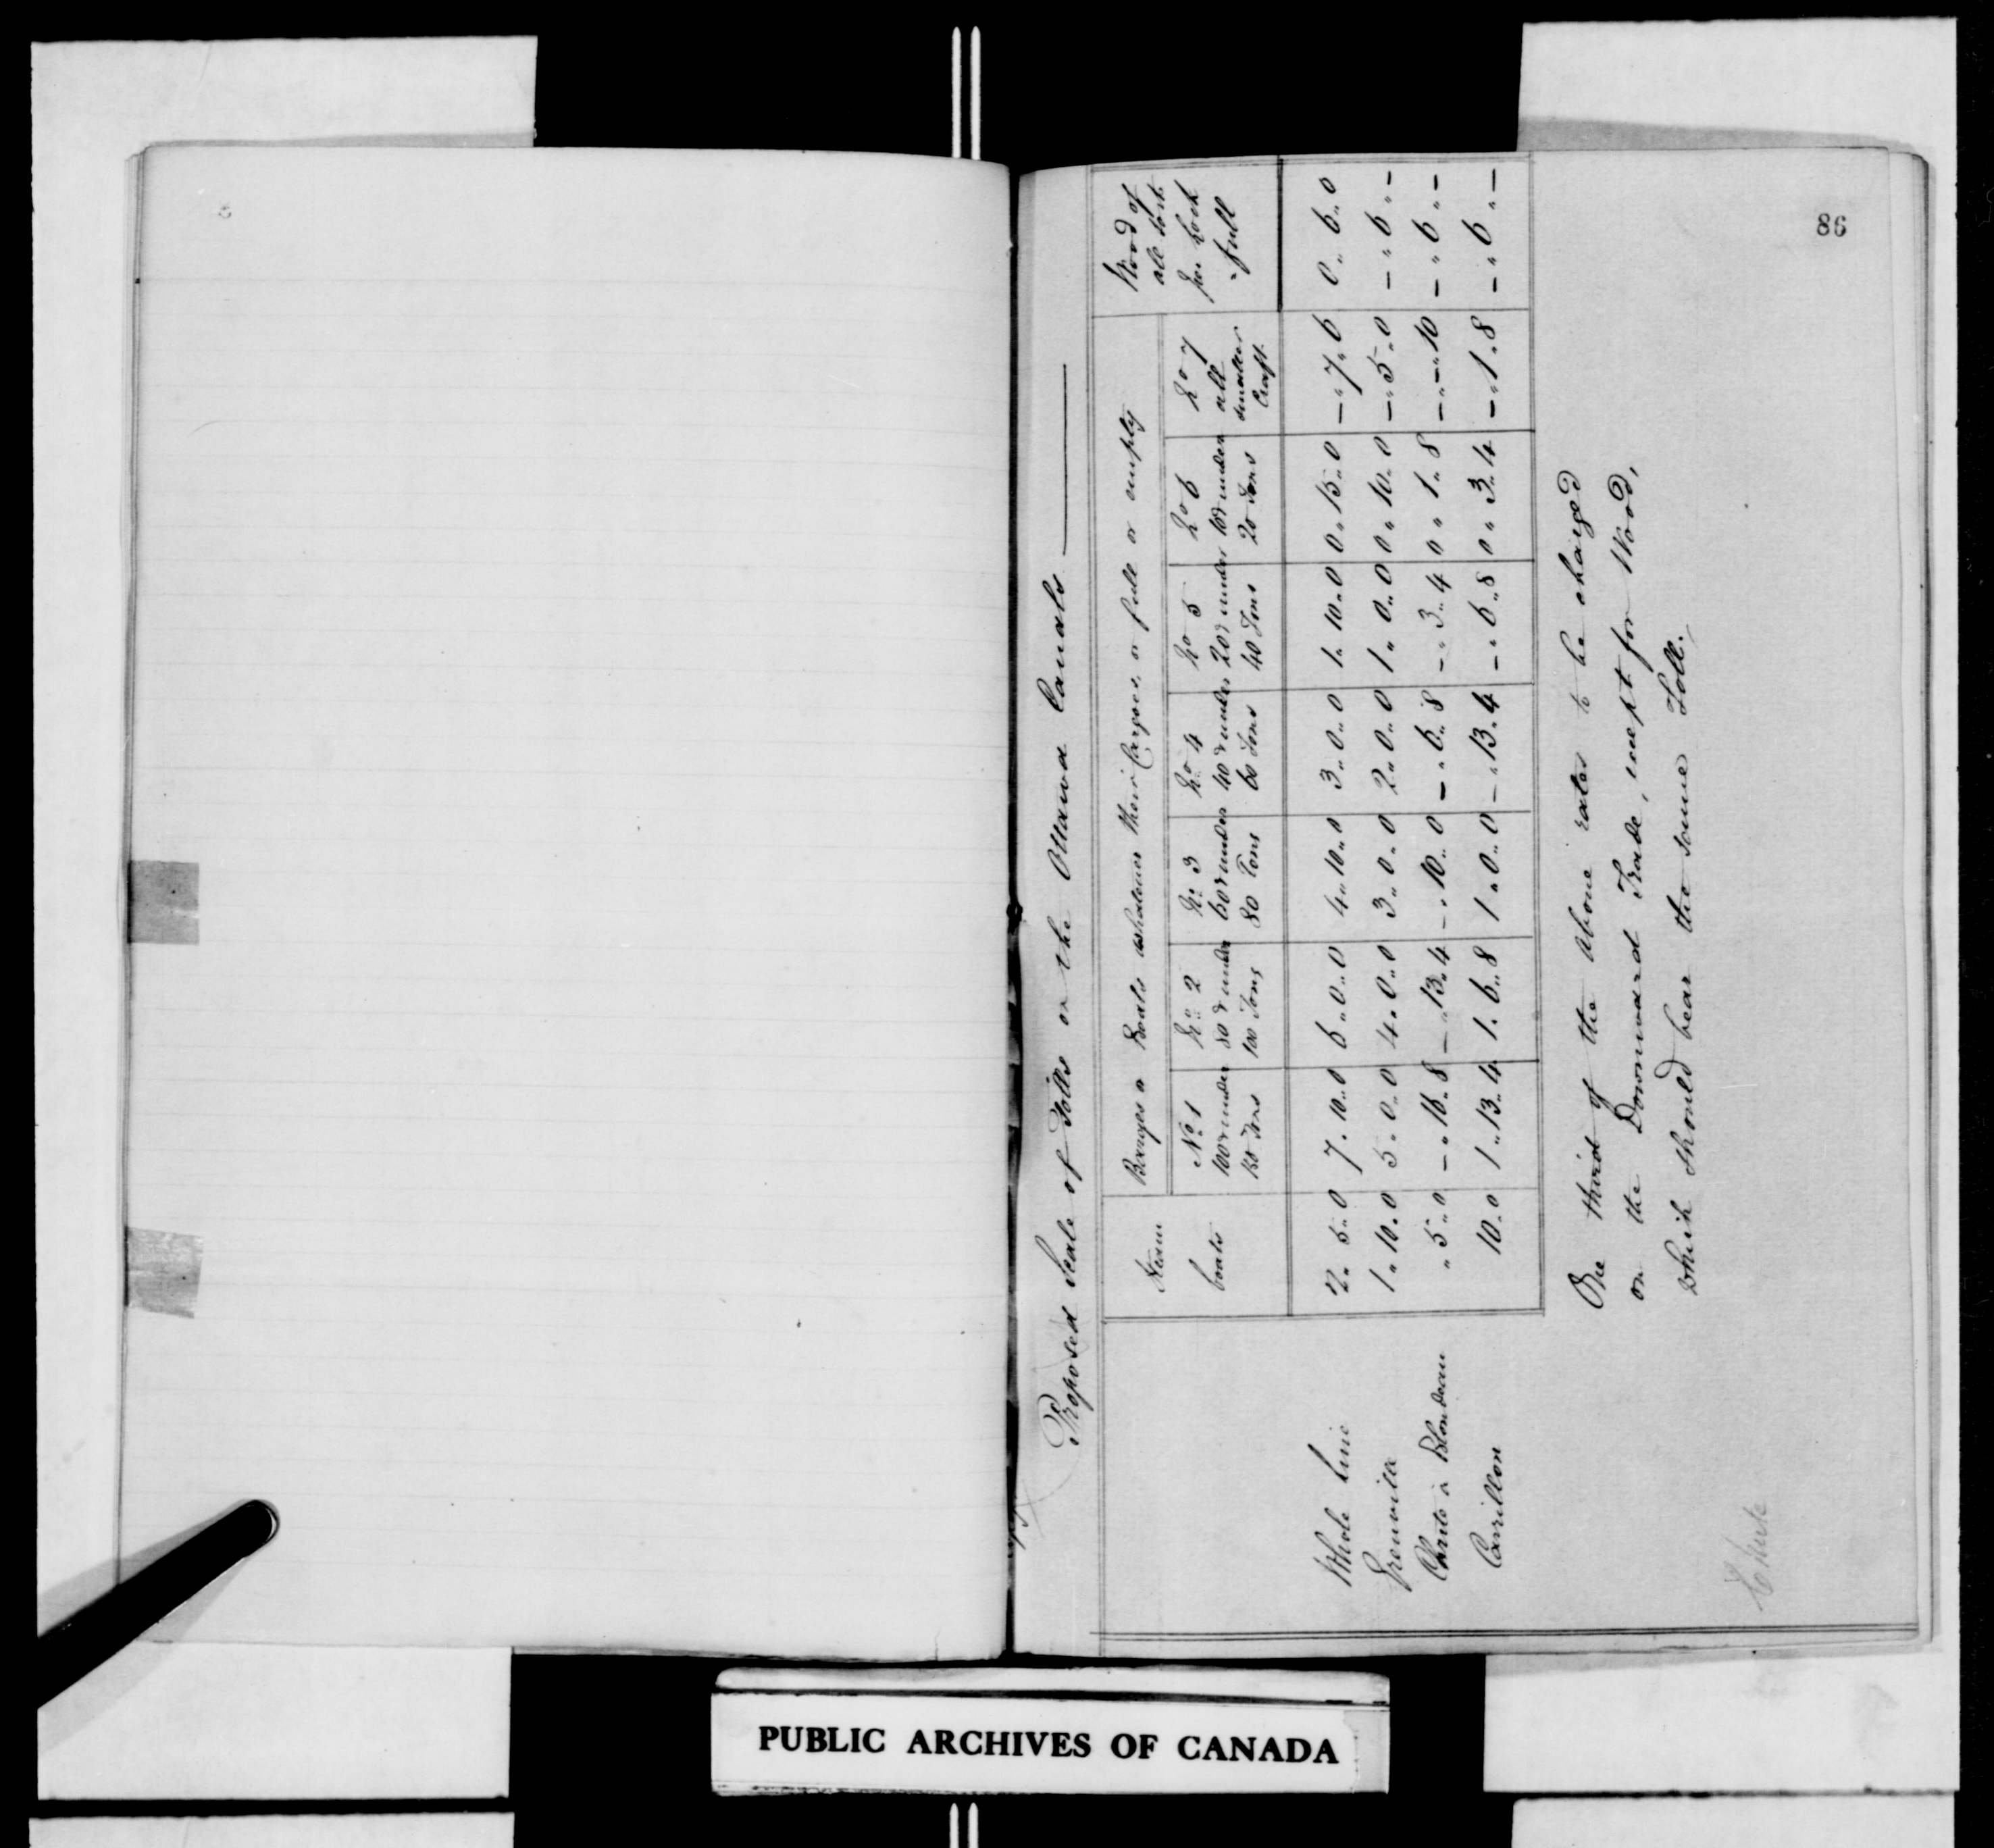 86
Proposed Scale of Tolls on the Ottawa Canals
Steam boats
Barges or Boats whatever their Cargoes, or full or empty
Wood of all sorts per Lock full
No 1 100 & under 150 Tons
No 2 80 & under 100 Tons
No 3 60 & under 80 Tons
No 4 40 & under 60 Tons
No 5 20 & under 40 Tons
No 6 10 & under 20 Tons
No 7 all smaller Craft
Whole Line 2" 5"0 7"10"0 6"0"0 4"10"0 3"0"0 1"10"0 0"15"0 —"7"6 0"6"0
Grenville 1"10"0 5"0"0 4"0"0 3"0"0 2"0"0 1"0"0 0"10"0 —"5"0 —"6"—
Chute à Blondeau "5"0 —"16"8 —"13"4 —"10"0 —"6"8 —"3"4 0"1"8 —"—"10 —"6"—
Carillon 10"0 1"13"4 1"6"8 1"0"0 —"13"4 —"6"8 0"3"4 —"1"8 —"6"—
One third of the above rates to be charged
on the Downward Trade, except for Wood,
which should bear the same Toll.
Chute
PUBLIC ARCHIVES OF CANADA